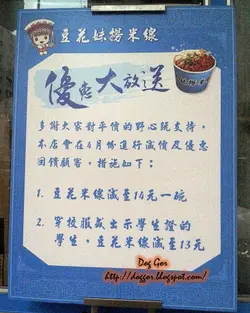 豆花妹撈米線
優惠大放送
多謝大家對平價的野心玩支持，
本店會在4月份進行減價及優惠
回饋顧客，措施如下：
1. 豆花米線減至14元一碗
2. 穿校服或出示學生證的
學生，豆花米線減至13元
Dog Gor
http://doggor.blogspot.com/